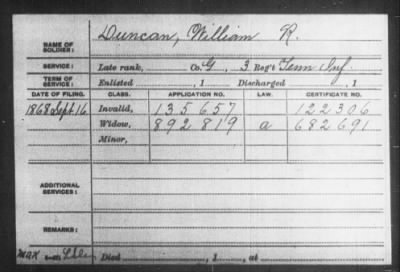 NAME OF SOLDIER: Duncan, William R.
SERVICE: Late rank, Co. G, 3 Reg't Tenn Inf.
TERM OF SERVICE: Enlisted , 1 Discharged , 1
DATE OF FILING. CLASS. APPLICATION NO. LAW. CERTIFICATE NO.
1868 Sept 16 Invalid, 135657 122306
Widow, 892819 a 682691
Minor,
ADDITIONAL SERVICES:
REMARKS:
Died , 1 , at